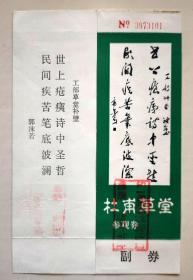 No 0973101
世上瘡痍詩中聖哲
民間疾苦筆底波瀾
杜甫草堂
参观券
副券
工部草堂补壁
世上疮痍诗中圣哲
民间疾苦笔底波澜
郭沫若